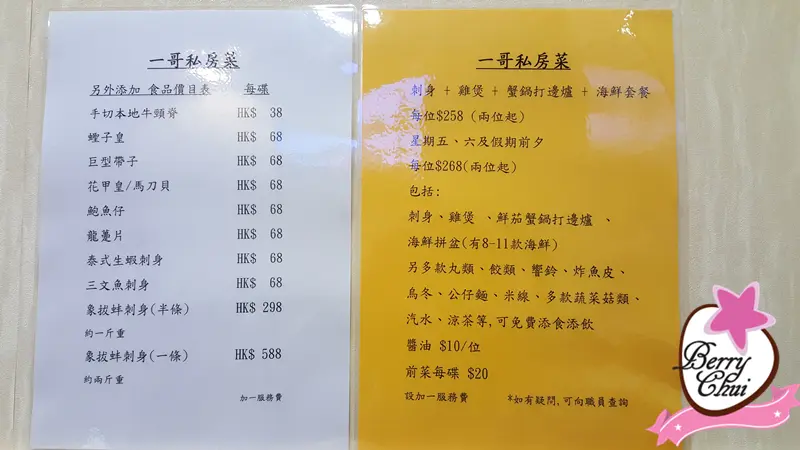 一哥私房菜
另外添加 食品價目表 每碟
手切本地牛頸脊 HK$ 38
蟶子皇 HK$ 68
巨型帶子 HK$ 68
花甲皇/馬刀貝 HK$ 68
鮑魚仔 HK$ 68
龍躉片 HK$ 68
泰式生蝦刺身 HK$ 68
三文魚刺身 HK$ 68
象拔蚌刺身(半條) HK$ 298
約一斤重
象拔蚌刺身(一條) HK$ 588
約兩斤重
加一服務費
一哥私房菜
刺身 + 雞煲 + 蟹鍋打邊爐 + 海鮮套餐
每位$258 (兩位起)
星期五、六及假期前夕
每位$268(兩位起)
包括:
刺身、雞煲 、鮮茄蟹鍋打邊爐 、
海鮮拼盆(有8-11款海鮮)
另多款丸類、餃類、響鈴、炸魚皮、
烏冬、公仔麵、米線、多款蔬菜菇類、
汽水、涼茶等,可免費添食添飲
醬油 $10/位
前菜每碟 $20
設加一服務費 *如有疑問,可向職員查詢
Berry
Chui